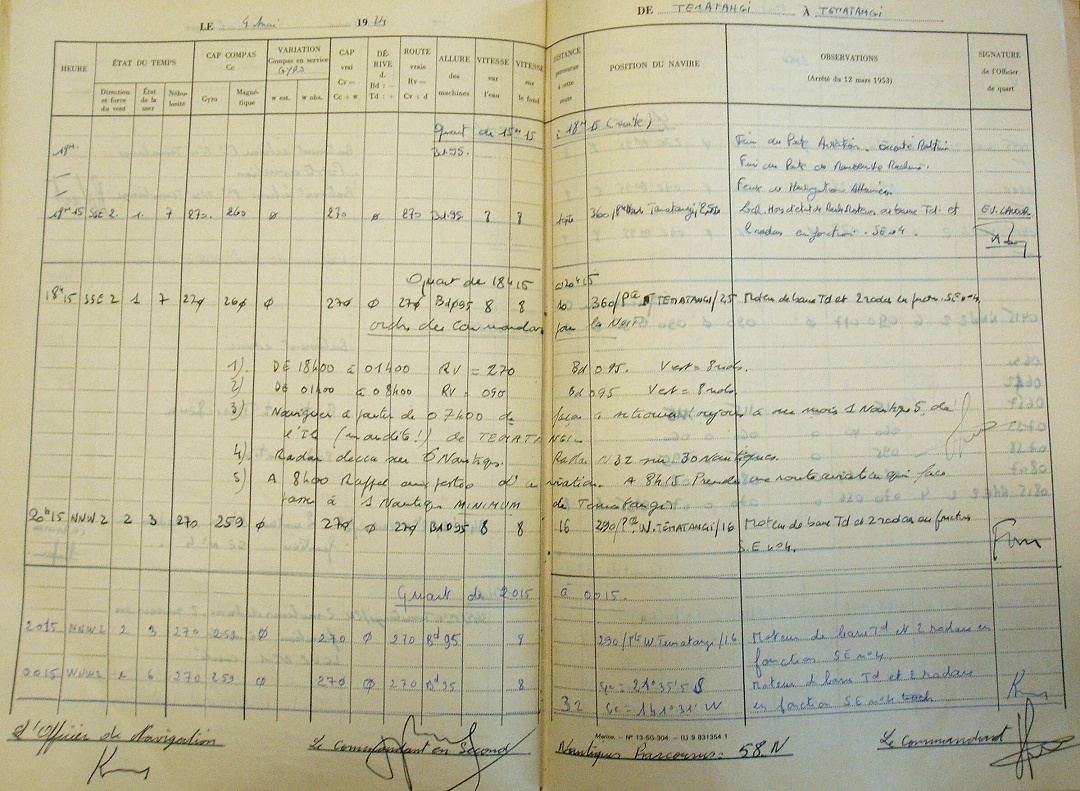 LE 4 Mai 19
DE TEMATANGI À TEMATANGI
HEURE
ÉTAT DU TEMPS
Direction et force du vent
État de la mer
Nébulosité
CAP COMPAS Cc
Gyro
Magnétique
VARIATION Compas en service GYRO
w est.
w obs.
CAP vrai Cv = Cc + w
DÉRIVE d. Bd : - Td : +
ROUTE vraie Rv = Cv + d
ALLURE des machines
VITESSE sur l'eau
VITESSE sur le fond
DISTANCE parcourue à cette route
POSITION DU NAVIRE
OBSERVATIONS
(Arrêté du 12 mars 1953)
SIGNATURE de l'Officier de quart
Quart de 15H15 à 18H15 (suite)
18H Bd 95. Fin du Poste Aviation.
Feux de Navigation
18H15 SSE 2 1. 7 270. 260 ø 270 ø 270 Bd 95 8 8 360/ Tematangi Td et
2 radars en fonction. SE n°4.
Quart de 18H15 à 20H15
18H15 SSE 2 1 7 27ø 26ø ø 27ø ø 27ø Bd 95 8 8 10 360/Pte TEMATANGI/25 Moteur de barre Td et 2 radars en fonct. SE n°4.
ordre du Commandant pour la Nuit
1) DE 18H00 à 01H00 RV = 270 Bd 095. Vest = 8 nds.
2) DE 01H00 à 08H00 RV = 090 Bd 095 Vest = 8 nds.
3) Naviguer à partir de 07H00 de façon à se trouver toujours à 1 Nautique 5 de
l'île (maudite!) de TEMATANGI.
4) Radar decca sur 6 Nautiques. Radar N32 sur 30 Nautiques.
5) A 8H00 Rappel aux postes d'aviation. A 8H15 Prendre une route aviation qui
passe à 1 Nautique MINIMUM de Tematangi.
20H15 NNW 2 2 3 270 259 ø 27ø ø 27ø Bd 95 8 8 16 290/Pte W. TEMATANGI/16 Moteur de barre Td et 2 radars en fonction
S.E n°4.
Quart de 2015 à 0015.
2015 NNW 2 2 3 270 259 ø 270 ø 270 Bd 95 8 290/Pte W Tematangi/16 Moteur de barre Td et 2 radars en
fonction S.E n°4
0015 WNW 2 2 6 270 259 ø 270 ø 270 Bd 95 8 Gc = 21°35'5 S Moteur de barre Td et 2 radars
32 Gc = 141°31' W en fonction S.E n°4
L'Officier de Navigation
Le Commandant en Second
Marine. — N° 13-5G-304. — (U) 9 831354 1
Nautiques Parcourus: 58.N
Le Commandant